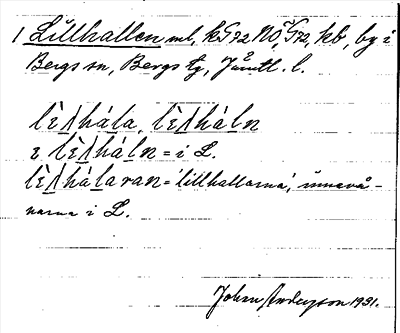 1 Lillhallen ml, kG72NÖ, G72, kb, by i
Bergs sn, Bergs tg, Jämtl. l.
lèlhála, lèlháln
i lèlháln = i L.
lèlhálaran = 'lillhallarna', innevå-
narna i L.
John Anderson 1931.